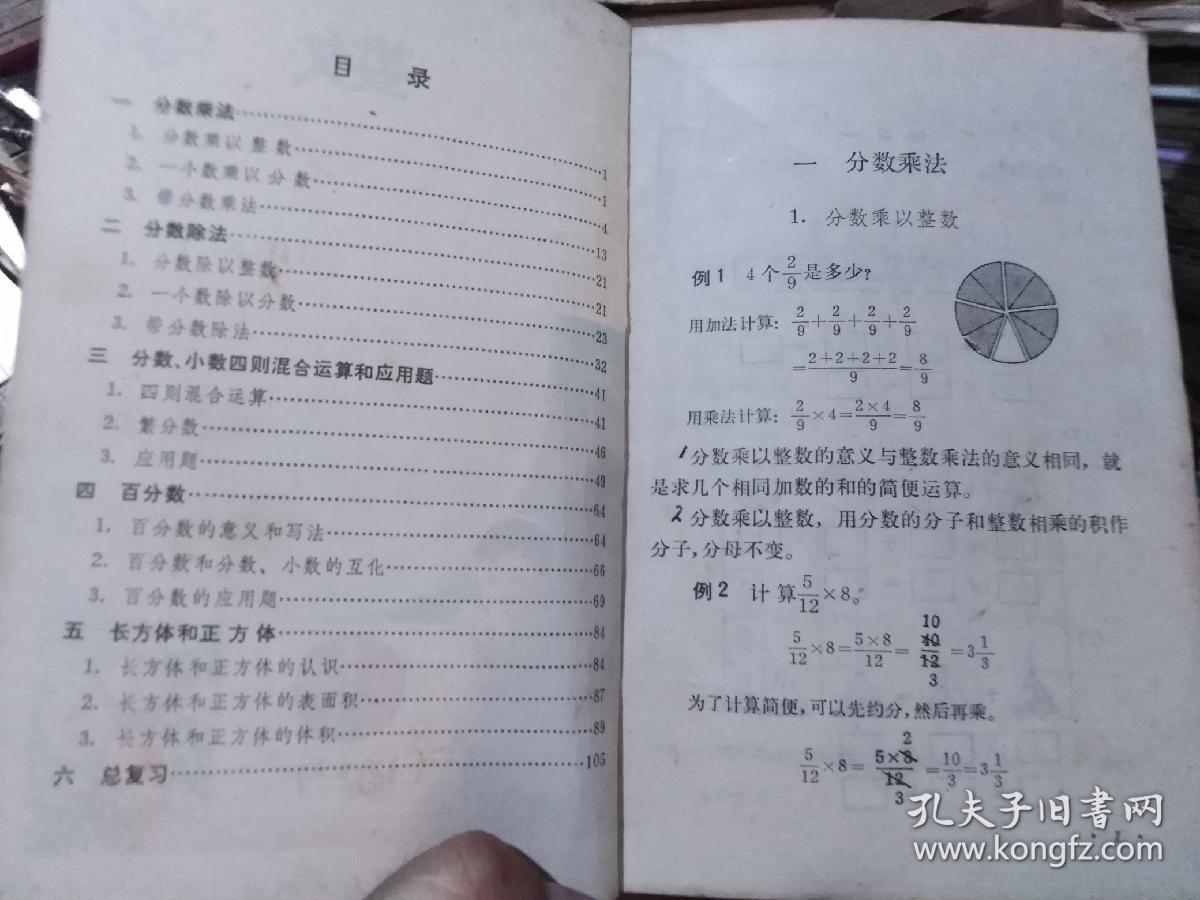 目 录
一 分数乘法……1
1. 分数乘以整数……1
2. 一个数乘以分数……4
3. 带分数乘法……13
二 分数除法……21
1. 分数除以整数……21
2. 一个数除以分数……23
3. 带分数除法……32
三 分数、小数四则混合运算和应用题……41
1. 四则混合运算……41
2. 繁分数……46
3. 应用题……49
四 百分数……64
1. 百分数的意义和写法……64
2. 百分数和分数、小数的互化……66
3. 百分数的应用题……69
五 长方体和正方体……84
1. 长方体和正方体的认识……84
2. 长方体和正方体的表面积……87
3. 长方体和正方体的体积……89
六 总复习……105
一 分数乘法
1. 分数乘以整数
例1 4个2/9是多少?
用加法计算: 2/9+2/9+2/9+2/9
=(2+2+2+2)/9=8/9
用乘法计算: 2/9×4=(2×4)/9=8/9
1分数乘以整数的意义与整数乘法的意义相同, 就
是求几个相同加数的和的简便运算。
2分数乘以整数, 用分数的分子和整数相乘的积作
分子,分母不变。
例2 计算5/12×8。
10
5/12×8=(5×8)/12=40/12=3 1/3
3
为了计算简便,可以先约分,然后再乘。
2
5/12×8=(5×8)/12=10/3=3 1/3
3
·1·
孔夫子旧书网
www.kongfz.com